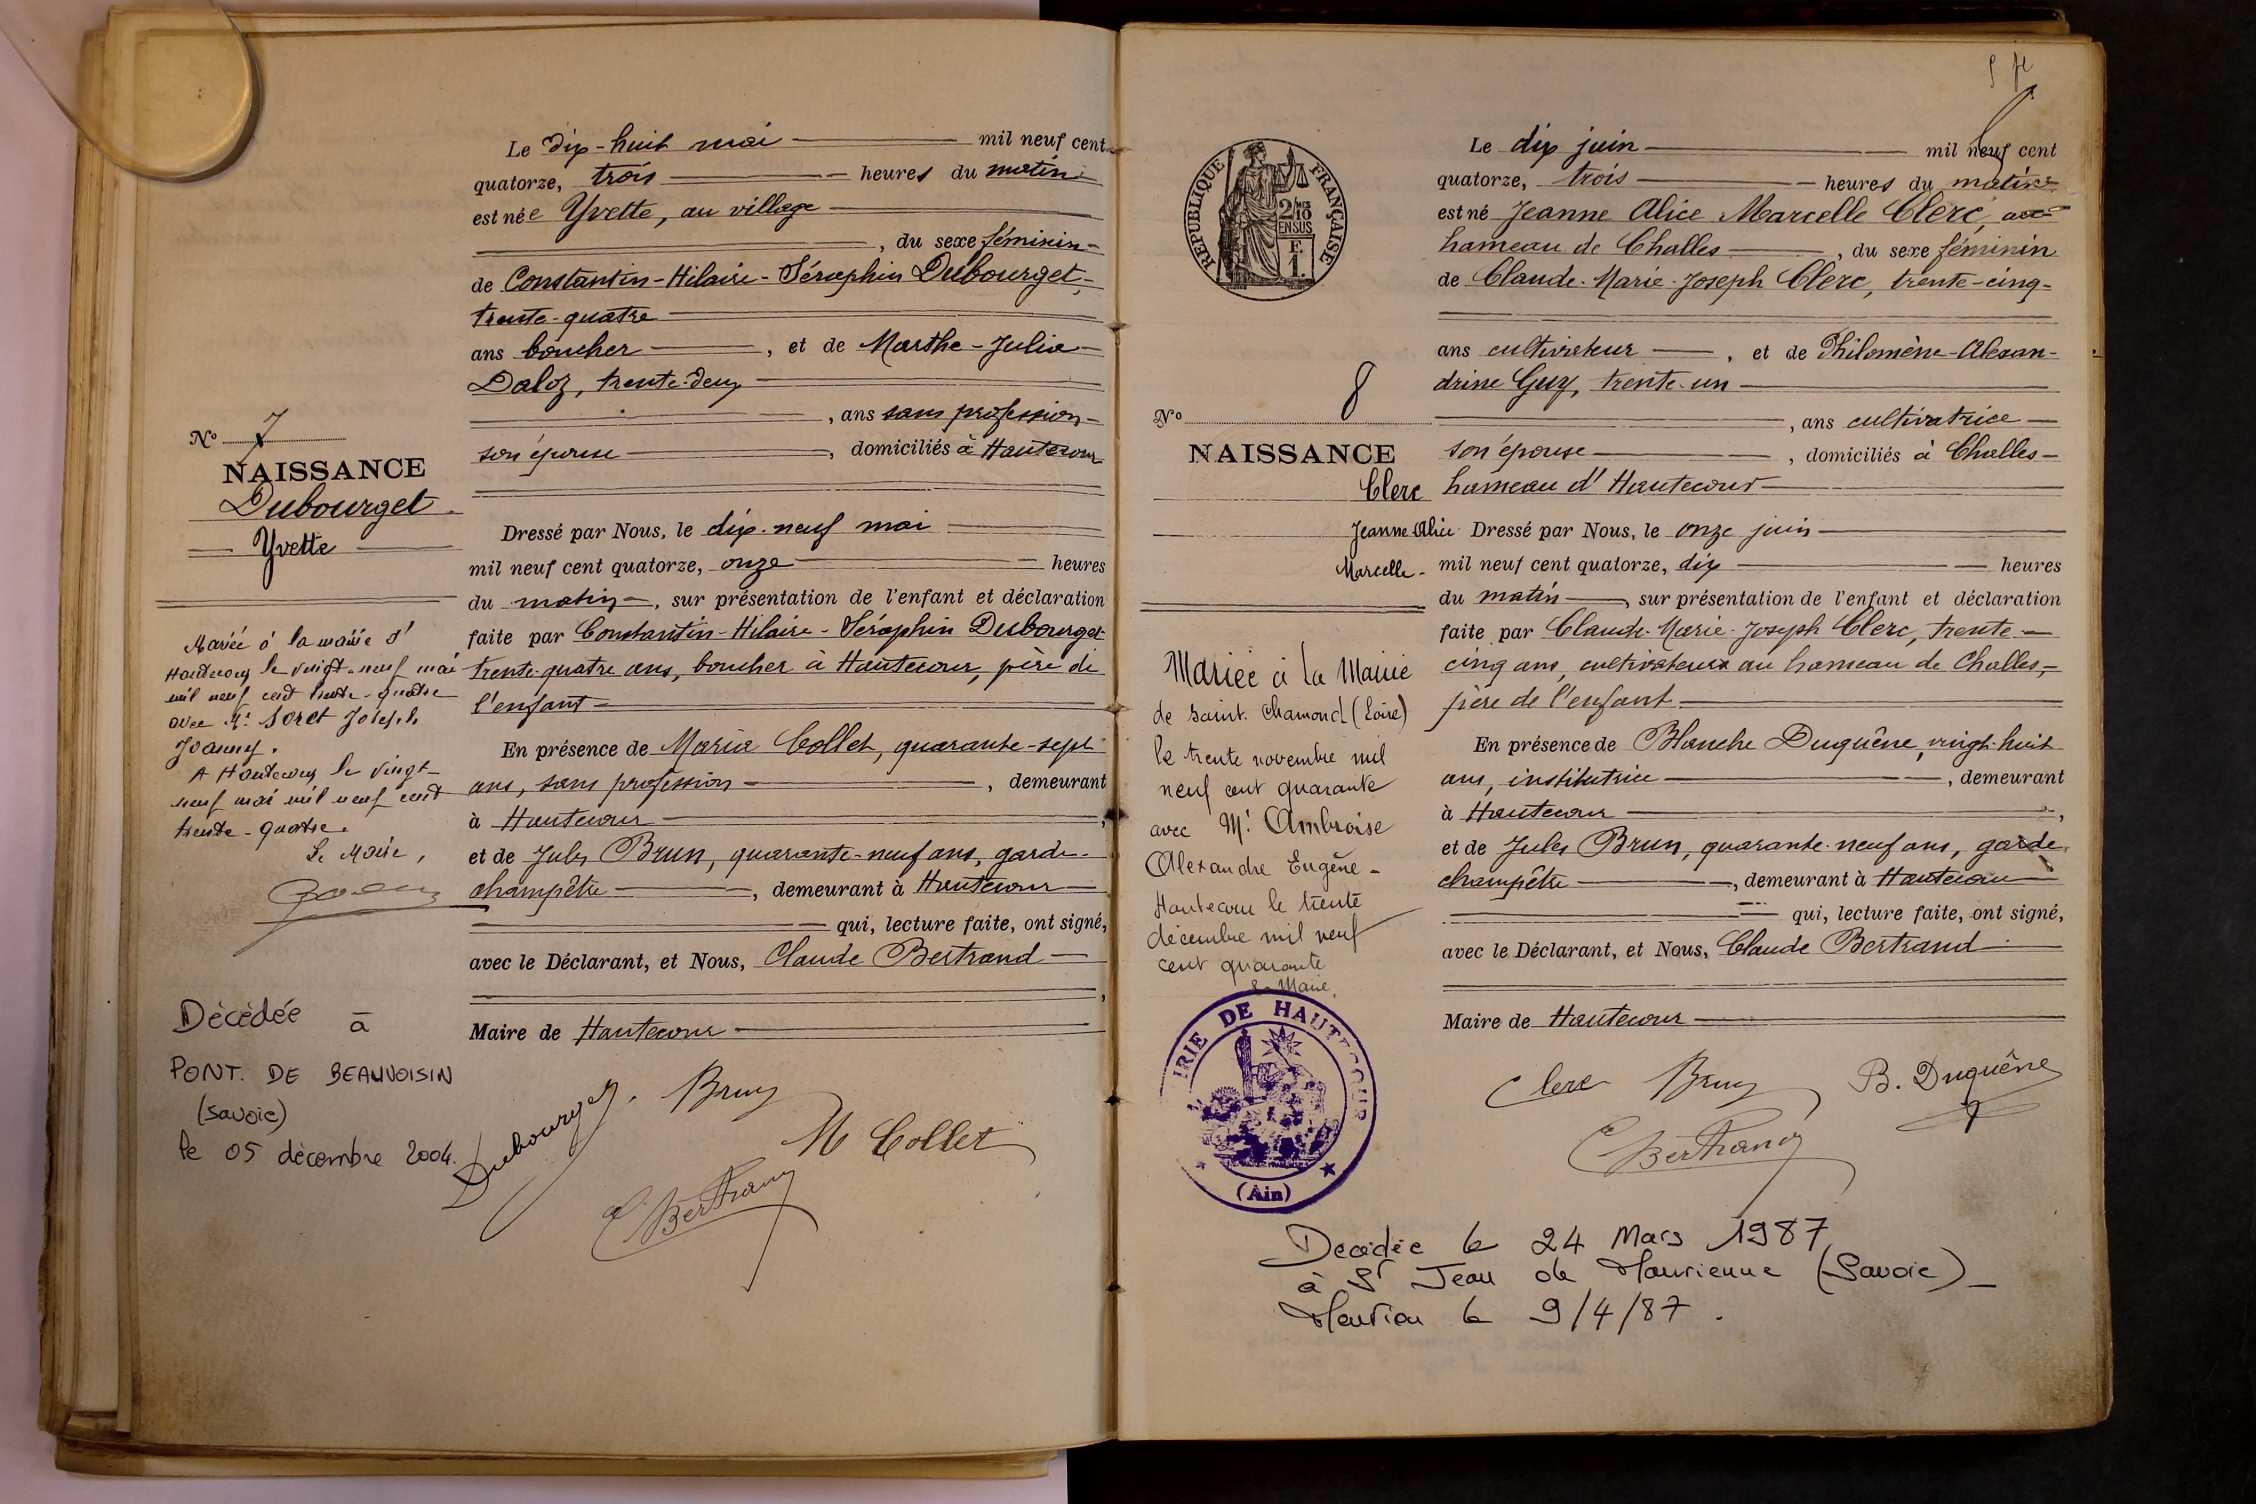 Le dix-huit mai mil neuf cent
quatorze, trois heures du matin
est née Yvette, au village
, du sexe féminin
de Constantin-Hilaire-Séraphin Dubourget,
trente-quatre
ans boucher, et de Marthe-Julia
Daloz, trente-deux
, ans sans profession
son épouse, domiciliés à Hautecour
Nº 7
NAISSANCE
Dubourget
Yvette
Dressé par Nous, le dix-neuf mai
mil neuf cent quatorze, onze heures
du matin, sur présentation de l'enfant et déclaration
faite par Constantin-Hilaire-Séraphin Dubourget
trente-quatre ans, boucher à Hautecour, père de
l'enfant
En présence de Maria Collet, quarante-sept
ans, sans profession, demeurant
à Hautecour,
et de Jules Brun, quarante-neuf ans, garde-
champêtre, demeurant à Hautecour
qui, lecture faite, ont signé,
avec le Déclarant, et Nous, Claude Bertrand
,
Maire de Hautecour
Mariée à la mairie d'
Hautecour le vingt-neuf mai
mil neuf cent trente-quatre
avec Mr. Soret Joseph
Joanny.
A Hautecour le vingt-
neuf mai mil neuf cent
trente-quatre.
Le Maire,
Décédée à
PONT. DE BEAUVOISIN
(Savoie)
le 05 décembre 2004.
Dubourget. Brun
M Collet
C Bertrand
RÉPUBLIQUE FRANÇAISE
2/10
EN SUS
F.
1.
Le dix juin mil neuf cent
quatorze, trois heures du matin
est né Jeanne Alice Marcelle Clerc, au
hameau de Challes, du sexe féminin
de Claude-Marie-Joseph Clerc, trente-cinq
ans cultivateur, et de Philomène-Alexan-
drine Guy, trente-un
, ans cultivatrice
son épouse, domiciliés à Challes
hameau d'Hautecour
Nº 8
NAISSANCE
Clerc
Jeanne Alice
Marcelle
Dressé par Nous, le onze juin
mil neuf cent quatorze, dix heures
du matin, sur présentation de l'enfant et déclaration
faite par Claude-Marie-Joseph Clerc, trente-
cinq ans, cultivateur au hameau de Challes,
père de l'enfant
En présence de Blanche Duquêne, vingt-huit
ans, institutrice, demeurant
à Hautecour,
et de Jules Brun, quarante-neuf ans, garde
champêtre, demeurant à Hautecour
qui, lecture faite, ont signé,
avec le Déclarant, et Nous, Claude Bertrand
Maire de Hautecour
Mariée à la Mairie
de Saint. Chamond (Loire)
le trente novembre mil
neuf cent quarante
avec Mr. Ambroise
Alexandre Eugène -
Hautecour le trente
décembre mil neuf
cent quarante
Le Maire,
MAIRIE DE HAUTECOUR
(Ain)
Clerc Brun B. Duquêne
C Bertrand
Décédée le 24 Mars 1987
à St Jean de Maurienne (Savoie)
Mention le 9/4/87.